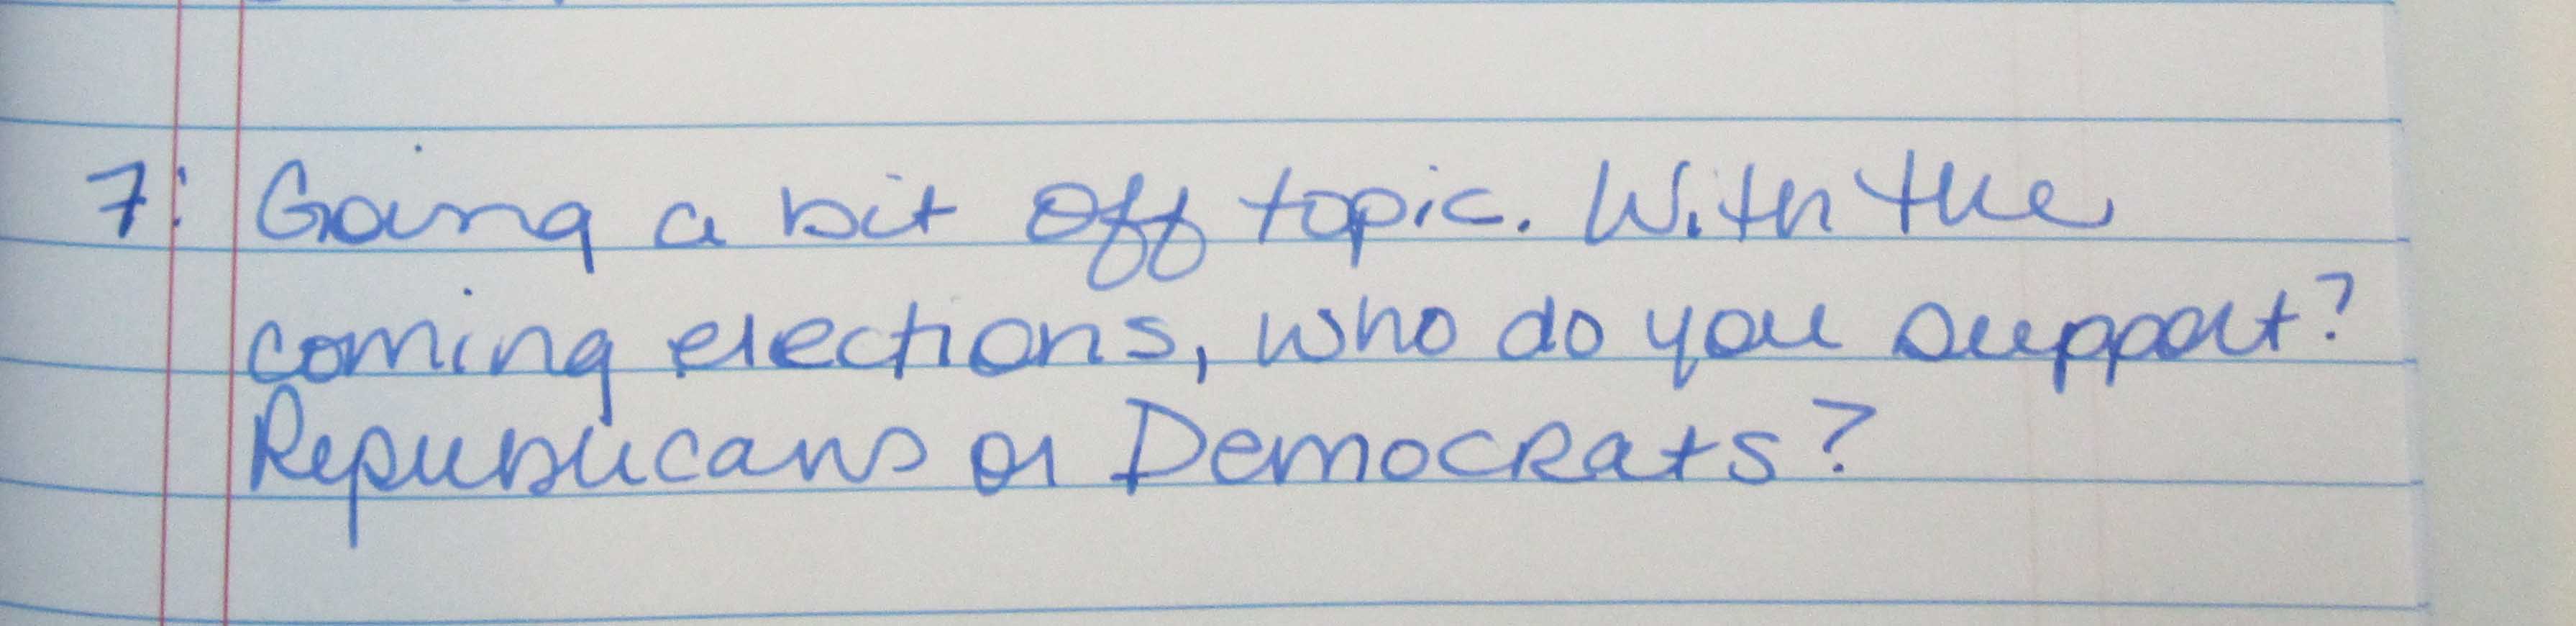 7: Going a bit off topic. With the
coming elections, who do you support?
Republicans or Democrats?